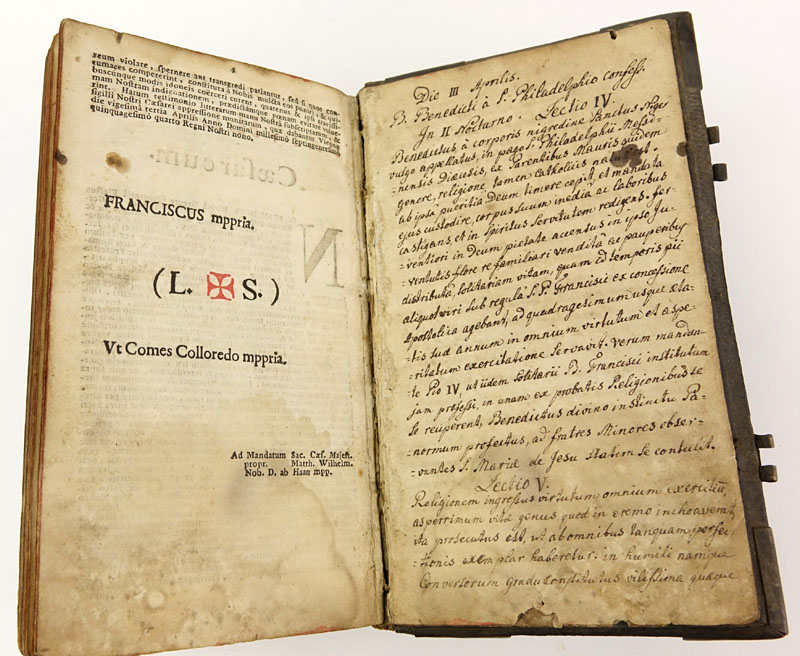 reum violare, spernere aut transgredi patiantur, sed si quos con-
tumaces compererint, constituta à Nobis mulcta eos puniri, & qui-
buscunque modis idoneis coërceri curent, quatenus & ipsi gravissi-
mam Nostram indignationem, præscriptamque pœnam evitare volue-
rint. Harum testimonio literarum manu Nostrâ subscriptarum, &
sigilli Nostri Cæsarei appressione munitarum, quæ dabantur Viennæ
die vigesima tertia Aprilis Anno Domini millesimo septingentesimo
quinquagesimo quarto Regni Nostri nono.
FRANCISCUS mppria.
(L. ✠ S.)
Vt Comes Colloredo mppria.
Ad Mandatum Sac. Cæs. Majest.
propr. Matth. Wilhelm.
Nob. D. ab Haan mpp.
Die III Aprilis.
B. Benedicti à S. Philadelphio Confess.
In II Nocturno. Lectio IV.
Benedictus à corporis nigredine Sanctus Niger
vulgo appellatus, in pago S. Philadelphii Messa-
=nensis Diœcesis, ex Parentibus Mauris quidem
genere, religione tamen Catholicis natus est.
ab ipsa pueritia Deum timere cœpit, et mandata
ejus custodire, corpus suum inediâ ac laboribus
castigans, et in spiritus servitutem redigens. fer-
=ventiori in Deum pietate accensus in ipso Ju-
=ventutis flore re familiari venditâ ac pauperibus
distributâ, solitariam vitam, quam id temporis pii
aliquot viri sub regula S. P. Francisci ex concessione
Apostolica agebant, ad quadragesimum usque æta-
=tis suæ annum in omnium virtutum et aspe-
=ritatum exercitatione servavit. verum mandan-
te Pio IV, ut iidem solitarii B. Francisci institutum
jam professi, in unam ex probatis Religionibus se
se reciperent, Benedictus divino instinctu Pa-
=normum profectus, ad fratres Minores obser-
=vantes S. Mariæ de Jesu statim se contulit.
Lectio V.
Religionem ingressus virtutum omnium exercitiu,
asperrimum vitæ genus quod in eremo inchoaverat,
ita prosecutus est, ut ab omnibus tanquam perfec-
=tionis exemplar haberetur. in humili namque
Conversorum gradu constitutus vilissima quæque